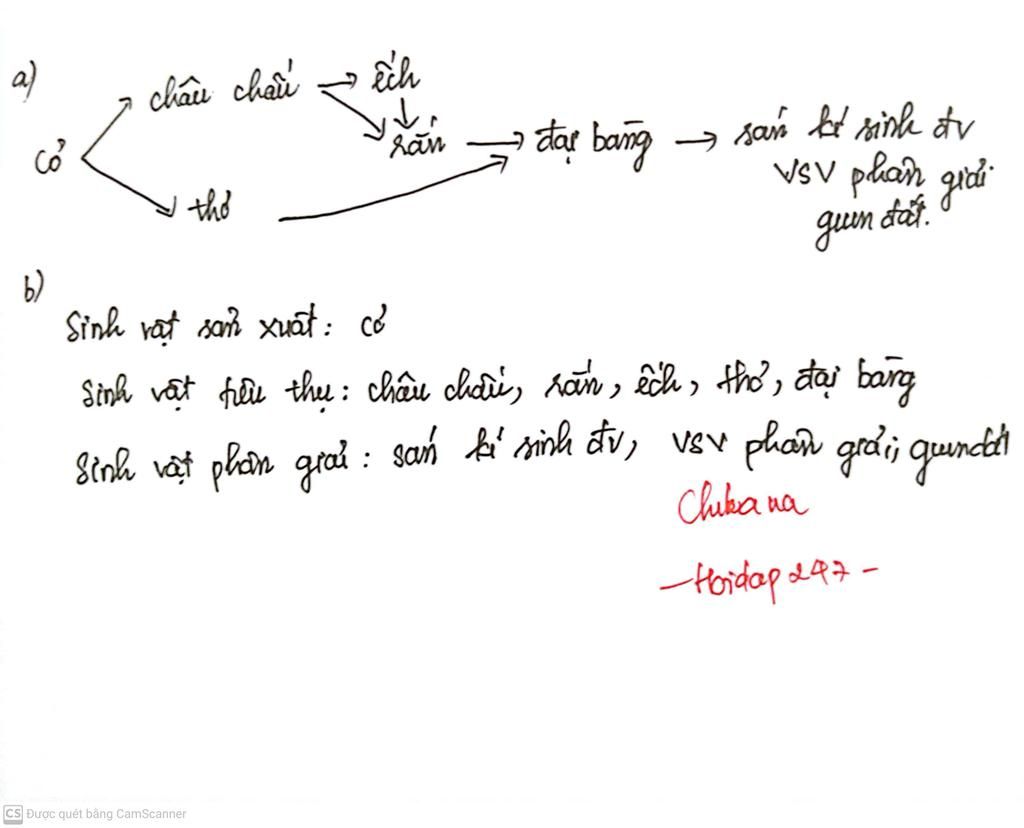 a)
châu chấu → ếch
cỏ → rắn → đại bàng → sán kí sinh đv
VSV phân giải
thỏ
giun đất.
b)
Sinh vật sản xuất: cỏ
Sinh vật tiêu thụ: châu chấu, rắn, ếch, thỏ, đại bàng
Sinh vật phân giải: sán kí sinh đv, VSV phân giải, giun đất
Chikana
- Hoidap247 -
CS Được quét bằng CamScanner